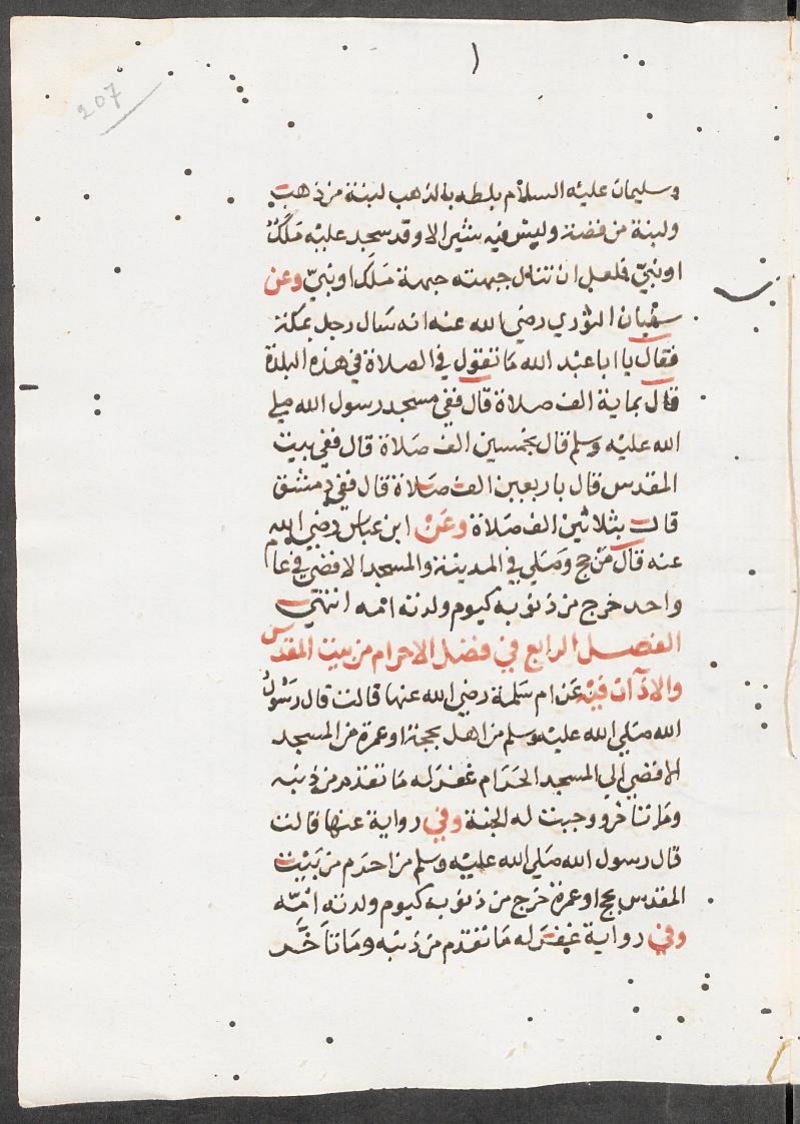 ١
207
وسليمان عليه السلام بلطه بالذهب لبنة من ذهب
ولبنة من فضة وليس فيه شبرا الا وقد سجد عليه ملك
او نبي فلعل ان تنال جبهته جبهة ملك او نبي وعن
سفيان الثوري رضي الله عنه انه سال رجل بمكة
فقال يا ابا عبد الله ما تقول في الصلاة في هذه البلدة
قال بماية الف صلاة قال ففي مسجد رسول الله صلي
الله عليه وسلم قال بخمسين الف صلاة قال ففي بيت
المقدس قال باربعين الف صلاة قال ففي دمشق
قال بثلاثين الف صلاة وعن ابن عباس رضي الله
عنه قال من حج وصلي في المدينة والمسجد الاقصي في عام
واحد خرج من ذنوبه كيوم ولدته امه انتهي
الفصل الرابع في فضل الاحرام من بيت المقدس
والاذان فيه عن ام سلمة رضي الله عنها قالت قال رسول
الله صلي الله عليه وسلم من اهل بحجة او عمرة من المسجد
الاقصي الي المسجد الحرام غفر له ما تقدم من ذنبه
وما تاخر ووجبت له الجنة وفي رواية عنها قالت
قال رسول الله صلي الله عليه وسلم من احرم من بيت
المقدس بحج او عمرة خرج من ذنوبه كيوم ولدته امه
وفي رواية غفر له ما تقدم من ذنبه وما تاخر